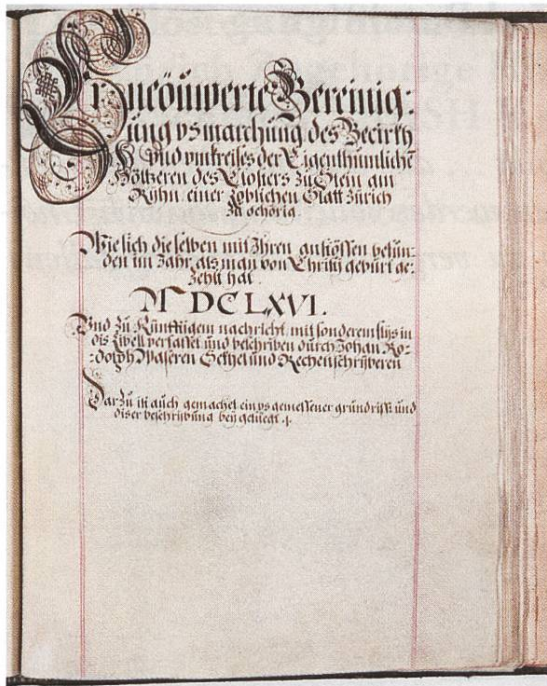 Erneöuwerte Bereinig:
ung vsmarchung des Becirkhs
Vnd vmkreises der Eigenthumlichē
Höltzeren des Closters zu Stein am
Rÿhn einer Loblichen Statt Zürich
Zu gehörig
Wie sich die selben mit Ihren anstössen befun:
den im Jahr, als man von Christi geburt ge:
Zehlt hat
M DCLXVI.
Vnd zu Künfftigem nachricht, mit sonderem flÿs in
dis Libell verfasset und beschriben durch Johan Ro:
:dolph Waseren Sekhel und Rechenschrÿberen
Dar zu ist auch gemachet ein vs gemessener grundriss und
diser beschrÿbung beÿ gefuegt